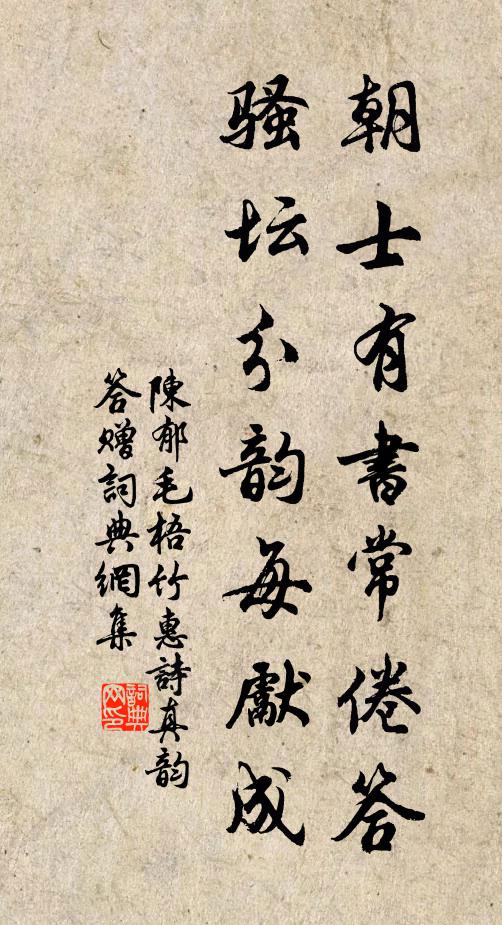 朝士有書常倦答
骚坛分韵每獻成
陳郁毛梧竹惠詩真韵
答赠詞典網集
詞典网印